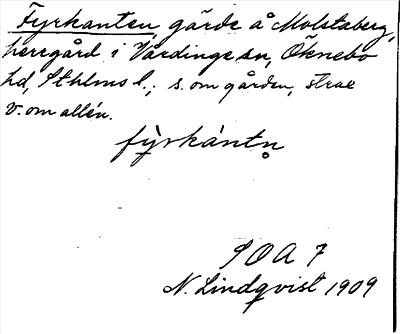 Fyrkanten, gärde å Molstaberg,
herrgård i Vårdinge sn, Öknebo
hd, Sthlms l.; s. om gården, strax
v. om allén.
fy̆rkántn̥
SOA 7
N. Lindqvist 1909